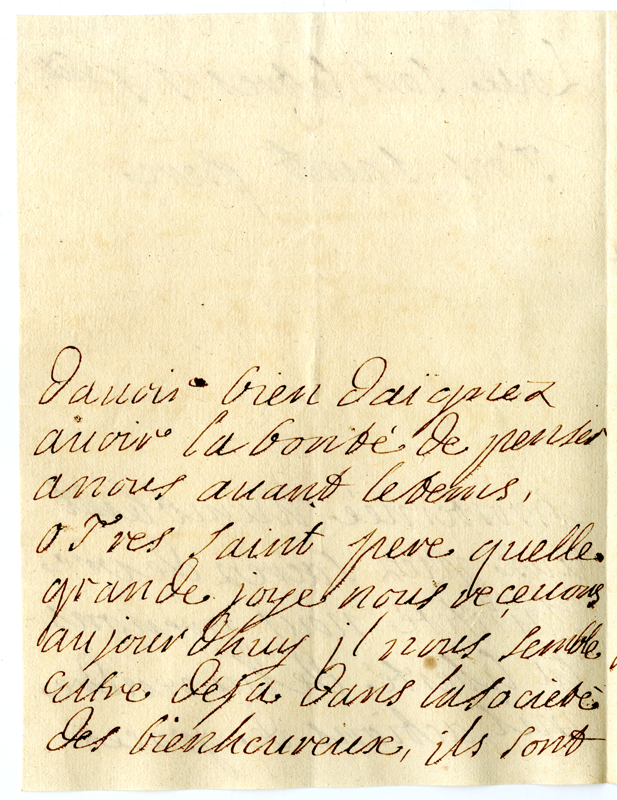 dauoir bien daïgnez
auoir la bonté de penser
anous auant letems,
o Tres saint pere quelle
grande joye nous reçeuons
aujourdhuy jl nous semble
estre déja dans lasocieté
des bienheureux, ils sont